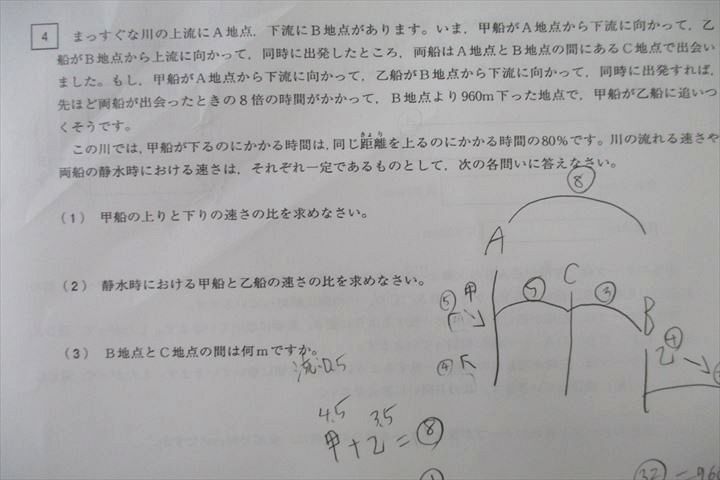 4 まっすぐな川の上流にA地点，下流にB地点があります。いま，甲船がA地点から下流に向かって，乙
船がB地点から上流に向かって，同時に出発したところ，両船はA地点とB地点の間にあるC地点で出会い
ました。もし，甲船がA地点から下流に向かって，乙船がB地点から下流に向かって，同時に出発すれば，
先ほど両船が出会ったときの8倍の時間がかかって，B地点より960m下った地点で，甲船が乙船に追いつ
くそうです。
きょり
この川では，甲船が下るのにかかる時間は，同じ距離を上るのにかかる時間の80％です。川の流れる速さや
両船の静水時における速さは，それぞれ一定であるものとして，次の各問いに答えなさい。
(1) 甲船の上りと下りの速さの比を求めなさい。
(2) 静水時における甲船と乙船の速さの比を求めなさい。
(3) B地点とC地点の間は何mですか。
⑧
A
C
⑤ 甲
⑤
③
B
④
乙 ④
流:0.5
4.5 3.5
甲+乙=⑧
①
㉜=960